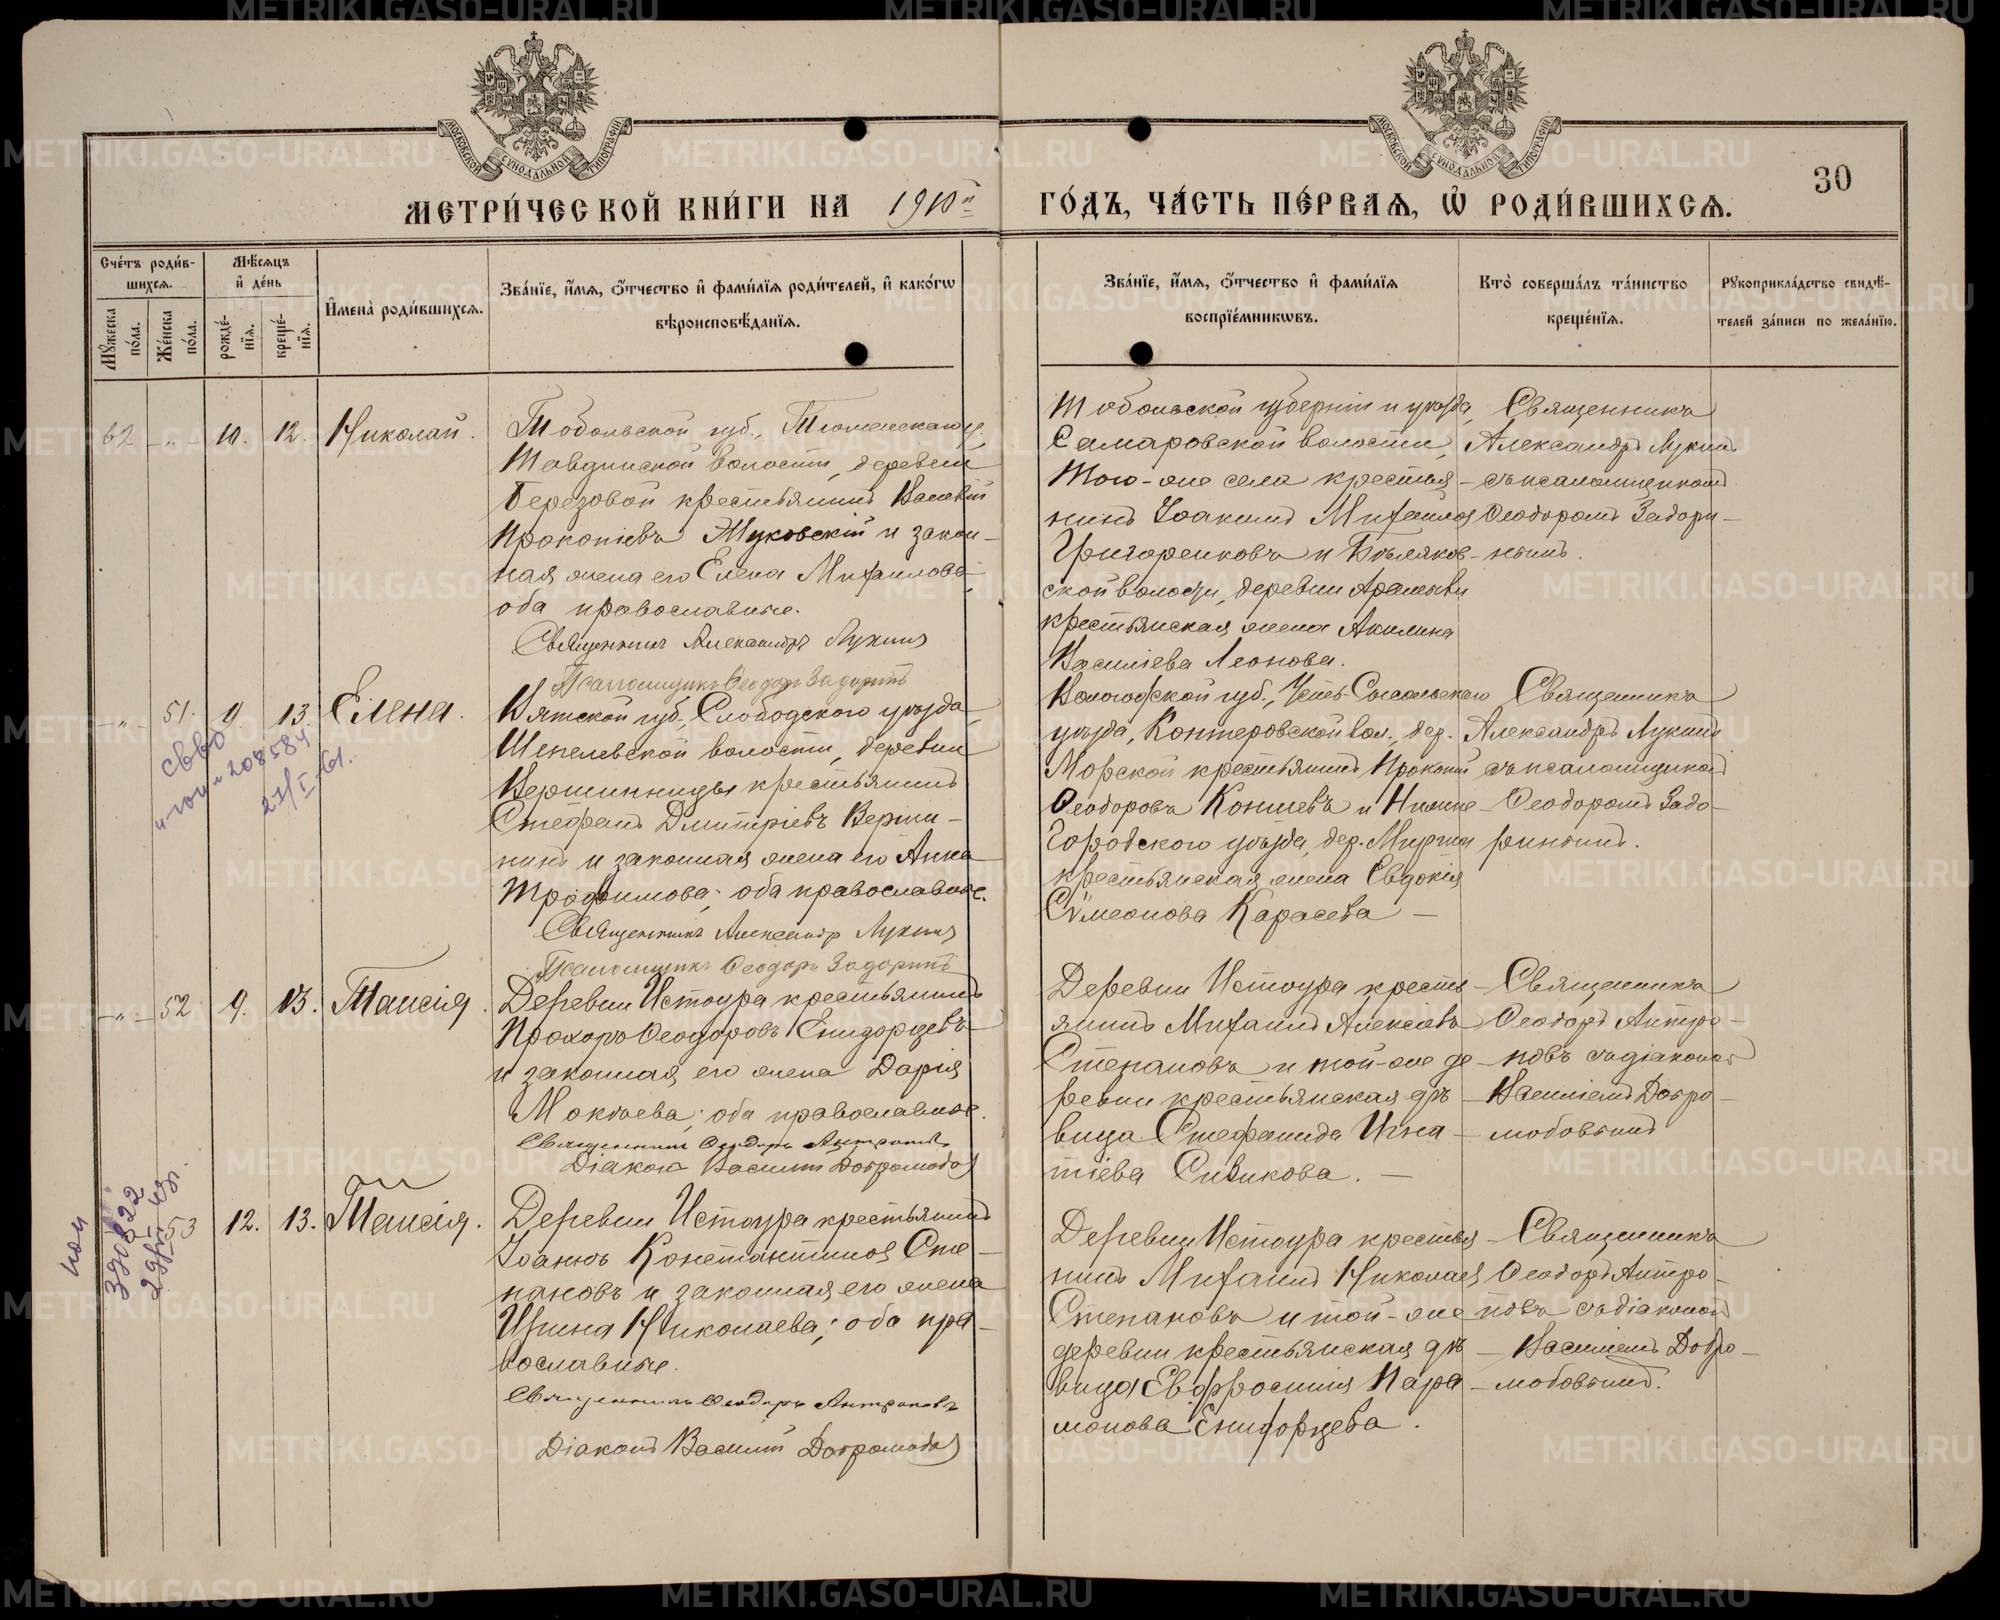 МЕТРИ́ЧЕСКОЙ КНИ́ГИ НА 1910й ГО́ДЪ, ЧА́СТЬ ПЕ́РВАѦ, Ѡ҆ РОДИ́ВШИХСѦ.
30
МОСКОВСКОЙ СѴНОДАЛЬНОЙ ТИПОГРАФІИ
МОСКОВСКОЙ СѴНОДАЛЬНОЙ ТИПОГРАФІИ
Сче́тъ роди́в-
шихсѧ.
Мꙋ́жеска по́ла.
Же́нска по́ла.
Мѣ́сѧцъ
и҆ де́нь
рожде́-
нїѧ.
креще́-
нїѧ.
И҆мена̀ роди́вшихсѧ.
Зва́нїе, и҆́мѧ, ѻ҆́тчество и҆ фами́лїѧ роди́телей, и҆ како́гѡ
вѣроисповѣ́данїѧ.
Зва́нїе, и҆́мѧ, ѻ҆́тчество и҆ фами́лїѧ
воспрїе́мникѡвъ.
Кто̀ соверша́лъ та́инство
креще́нїѧ.
Рꙋкоприкла́дство свидѣ́-
телей за́писи по жела́нїю.
62 - " - 10. 12. Николай.
Тобольской губ., Тюменскаго у.
Тавдинской волости, деревни
Березовой крестьянинъ Василій
Прокопіевъ Жуковскій и закон-
ная жена его Елена Михаилова
оба православные.
Священникъ Александръ Лукинъ
Псаломщикъ Ѳеодоръ Задоринъ
Тобольской губерніи и уѣзда,
Самаровской волости,
того-же села крестья-
нинъ Іоакимъ Михаиловъ
Григоренковъ и
ской волости, деревни
крестьянская жена Акилина
Василіева Леонова.
Священникъ
Александръ Лукинъ
съ псаломщикомъ
Ѳеодоромъ Задори-
нымъ.
- " - 51. 9 13. Елена.
Вятской губ., Слободского уѣзда,
Шепелевской волости, деревни
крестьянинъ
Стефанъ Дмитріевъ Верши-
нинъ и законная жена его Анна
Трофимова; оба православные.
Священникъ Александръ Лукинъ
Псаломщикъ Ѳеодоръ Задоринъ
Вологодской губ., Усть-Сысольскаго
уѣзда, вол., дер.
Морской крестьянинъ Прокопій
Ѳеодоровъ и Ниже-
городского уѣзда, дер.
крестьянская жена Евдокія
Сѵмеонова Карасева —
Священникъ
Александръ Лукинъ
съ псаломщикомъ
Ѳеодоромъ Задо-
ринымъ.
208584
27/I-61.
- " - 52 9. 13. Таисія.
Деревни Истоура крестьянинъ
Прохоръ Ѳеодоровъ Енидорцевъ
и законная его жена Дарія
Мокіева; оба православные.
Священникъ Ѳеодоръ Антроповъ
Діаконъ Василій Добромобовъ
Деревни Истоура кресть-
янинъ Михаилъ Алексіевъ
Степановъ и той-же де-
ревни крестьянская дѣ-
вица Стефанида Игна-
тіева Сивикова. —
Священникъ
Ѳеодоръ Антро-
повъ съ діакономъ
Василіемъ Добро-
мобовымъ
53 12. 13. Таисія.
Деревни Истоура крестьянинъ
Іоаннъ Константиновъ Сте-
пановъ и законная его жена
Ирина Николаева; оба пра-
вославные.
Священникъ Ѳеодоръ Антроповъ
Діаконъ Василій Добромобовъ
Деревни Истоура крестья-
нинъ Михаилъ Николаевъ
Степановъ и той-же
деревни крестьянская дѣ-
вица Евфросинія Пара-
монова Енидорцева.
Священникъ
Ѳеодоръ Антро-
повъ съ діакономъ
Василіемъ Добро-
мобовымъ.
METRIKI.GASO-URAL.RU